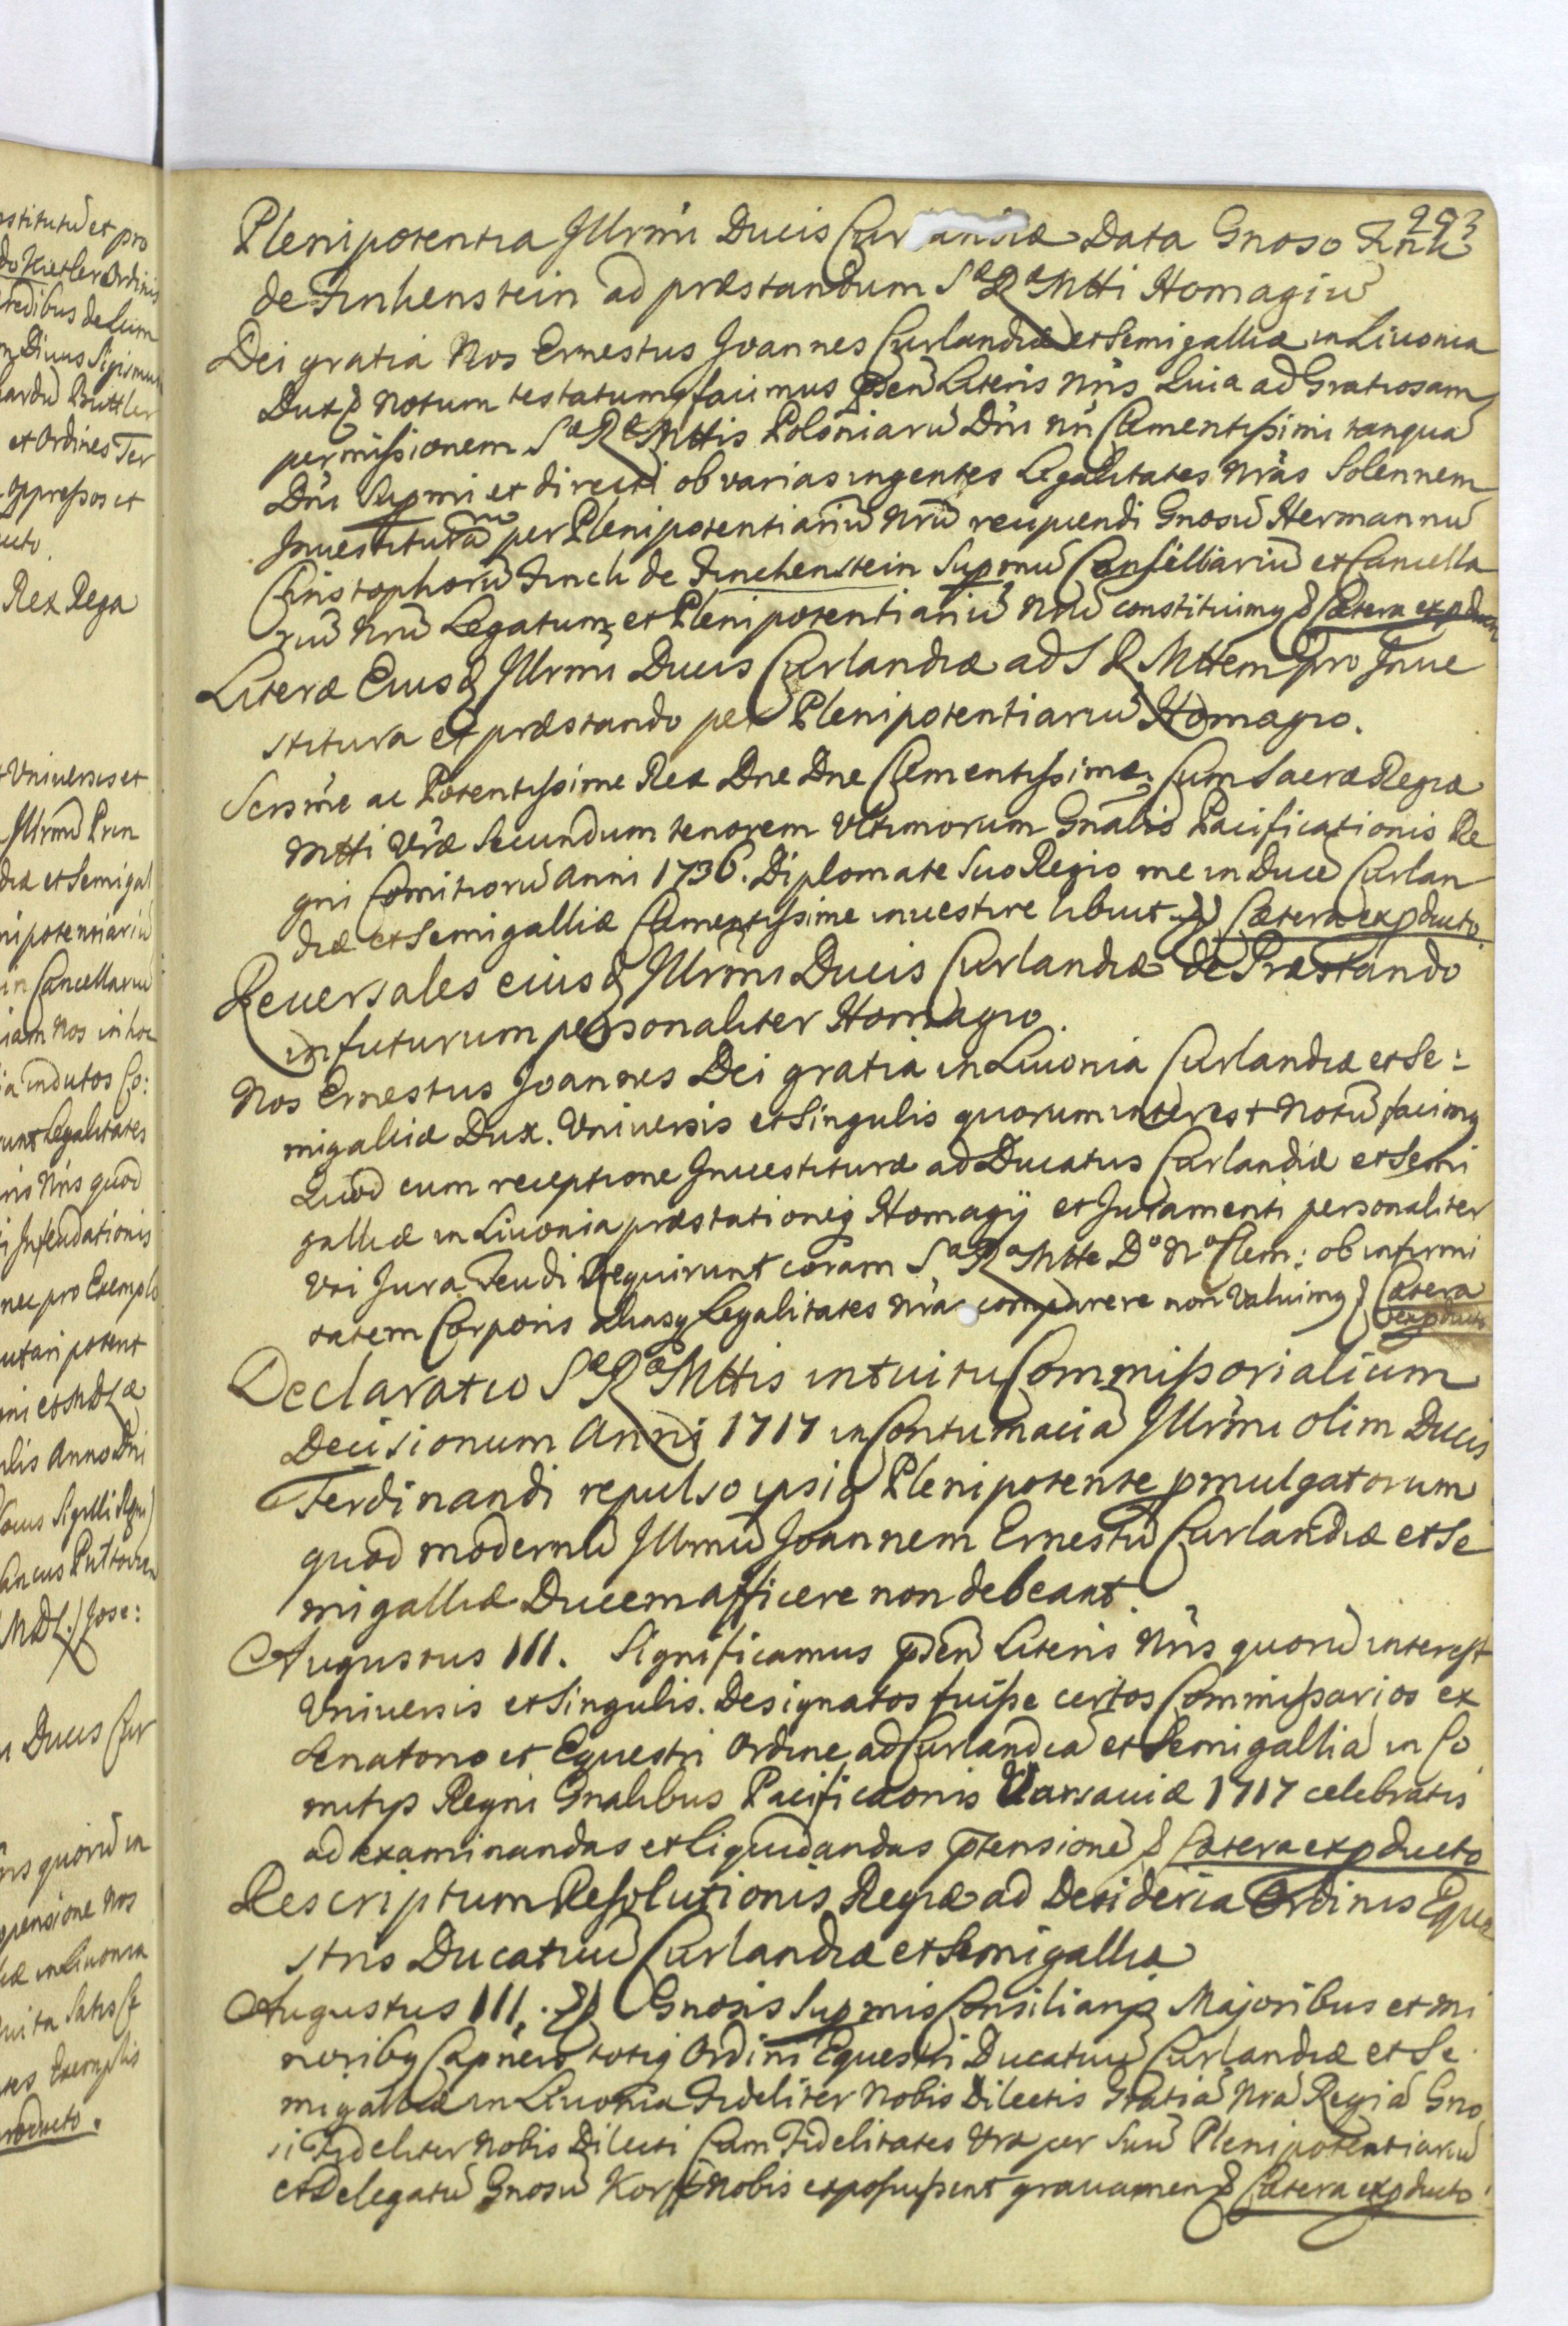 293
Plenipotentia Jllrmi Ducis Curlandiæ Data Gnoso Finck
de Finkenstein ad præstandum Sæ Ræ Mtti Homagiū
Dei gratia Nos Ernestus Joannes Curlandiæ et Semigalliæ in Livonia
Dux & notum testatumq facimus psen Literis nris Quia ad Gratiosam
permissionem Sæ Ræ Mttis Poloniarū Dni nri Clementissimi tanquā
Dni Supmi et directi ob varias ingentes Legalitates nras Solennem
Jnvestiturā per Plenipotentiariū nrū recipiendi Gnosū Hermannū
Christophorū Finck de Finckenstein Supmū Consiliariū et Cancella
riū nrū Legatum et Plenipotentiariū nrū constituimq & Cætera ex pducto
Literæ Eiusd Jllrmi Ducis Curlandiæ ad S R Mttem pro Jnve
stitura et præstando per Plenipotentiariū Homagio.
Sersme ac Potentissime Rex Dne Dne Clementissime; Cum Sacræ Regiæ
Mtti Vræ Secundum tenorem Ultimorum Gnalis Pacificationis Re
gni Comitiorū Anni 1736. Diplomate Suo Regio me in Ducē Curlan
diæ et Semigalliæ Clementissime investire libuit & Cætera ex pducto.
Reversales eiusd Jllrmi Ducis Curlandiæ de Præstando
in futurum personaliter Homagio.
Nos Ernestus Joannes Dei gratia in Livonia Curlandiæ et Se:
migalliæ Dux. Universis et Singulis quorum interest Notū facimq
Quod cum receptione Jnvestituræ ad Ducatus Curlandiæ et Semi
galliæ in Livonia præstationeq Homagÿ et Juramenti personaliter
Vti Jura Feudi Requirunt coram Sa Ra Mtte Do No Clem: ob infirmi
tatem Corporis aliasq Legalitates nras comparere non Valuimq & Cætera
ex pducto
Declaratio Sæ Ræ Mttis intuitu Commissorialium
Decisionum Anni 1717 in Contumaciā Jllrmi olim Ducis
Ferdinandi repulso ipsiq Plenipotente pmulgatorum
quod modernū Jllrmū Joannem Ernestū Curlandiæ et Se
migalliæ Ducem afficere non debeant.
Augustus III. Significamus psen Literis Nris quorū interest
Universis et Singulis. Designatos fuisse certos Commissarios ex
Senatorio et Equestri Ordine ad Curlandiā et Semigalliā in Co
mitys Regni Gnalibus Pacificaonis Varsaviæ 1717 celebratis
ad examinandas et liquidandas ptensione & Cætera ex pducto
Rescriptum Resolutionis Regiæ ad Desideria Ordinis Eque
stris Ducatuū Curlandiæ et Semigalliæ
Augustus III. & Gnosis Supmis Consiliarys Majoribus et mi
noribq Capneis totiq Ordini Equestri Ducatuū Curlandiæ et Se
migalliæ in Livonia Fideliter Nobis Dilectis Gratiā Nrā Regiā Gno
si Fideliter Nobis Dilecti Cum Fidelitates Vræ per Suū Plenipotentiariū
et Delegatū Gnosū Korff Nobis exposuissent gravamen & Cætera ex pducto